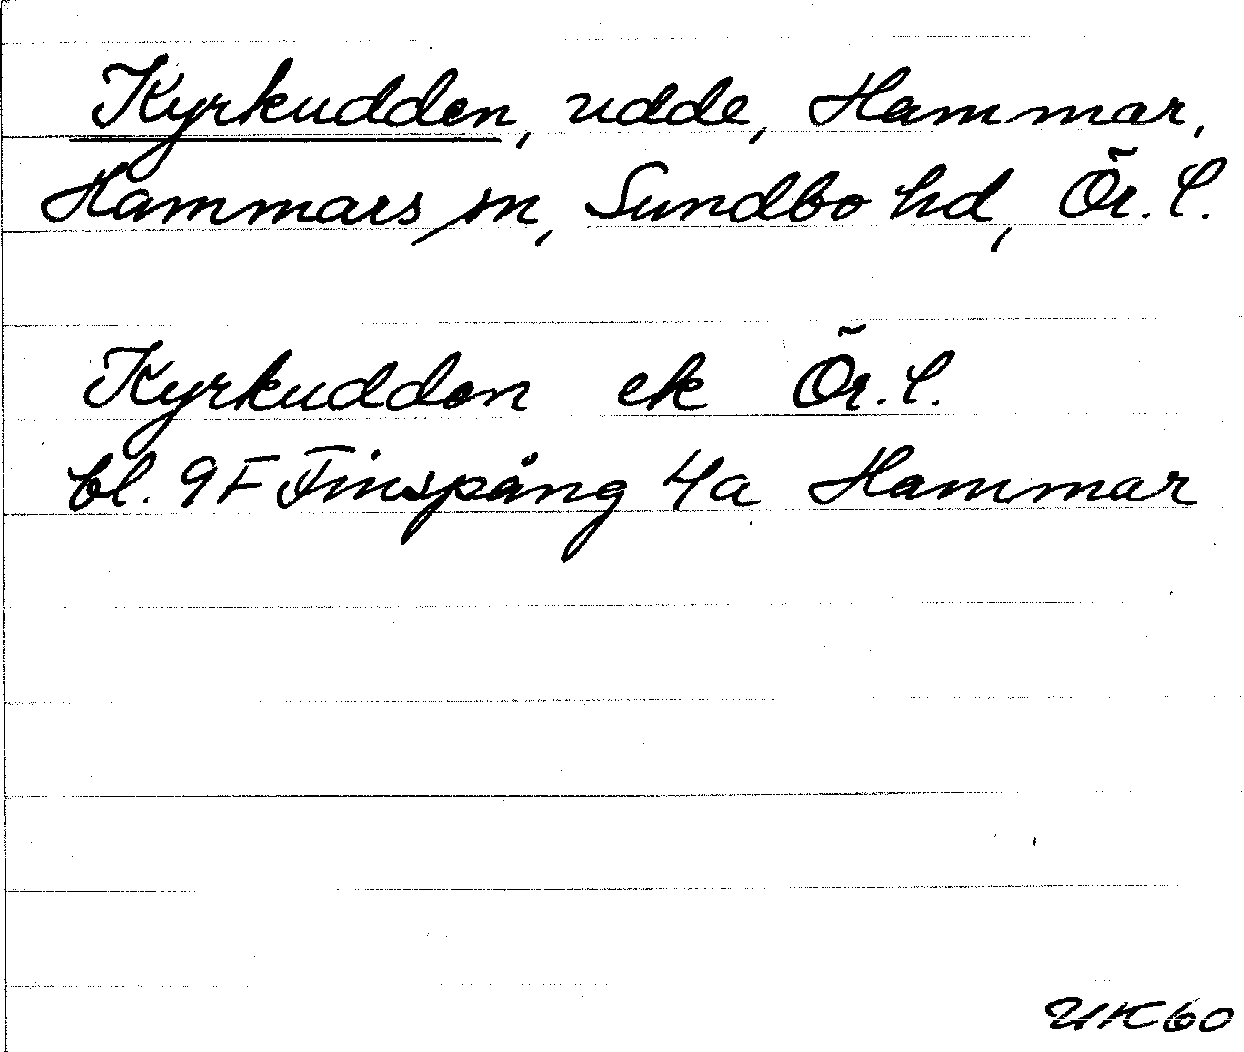 Kyrkudden, udde, Hammar,
Hammars sn, Sundbo hd, Ör. l.
Kyrkudden ek Ör. l.
bl. 9F Finspång 4a Hammar
UK60